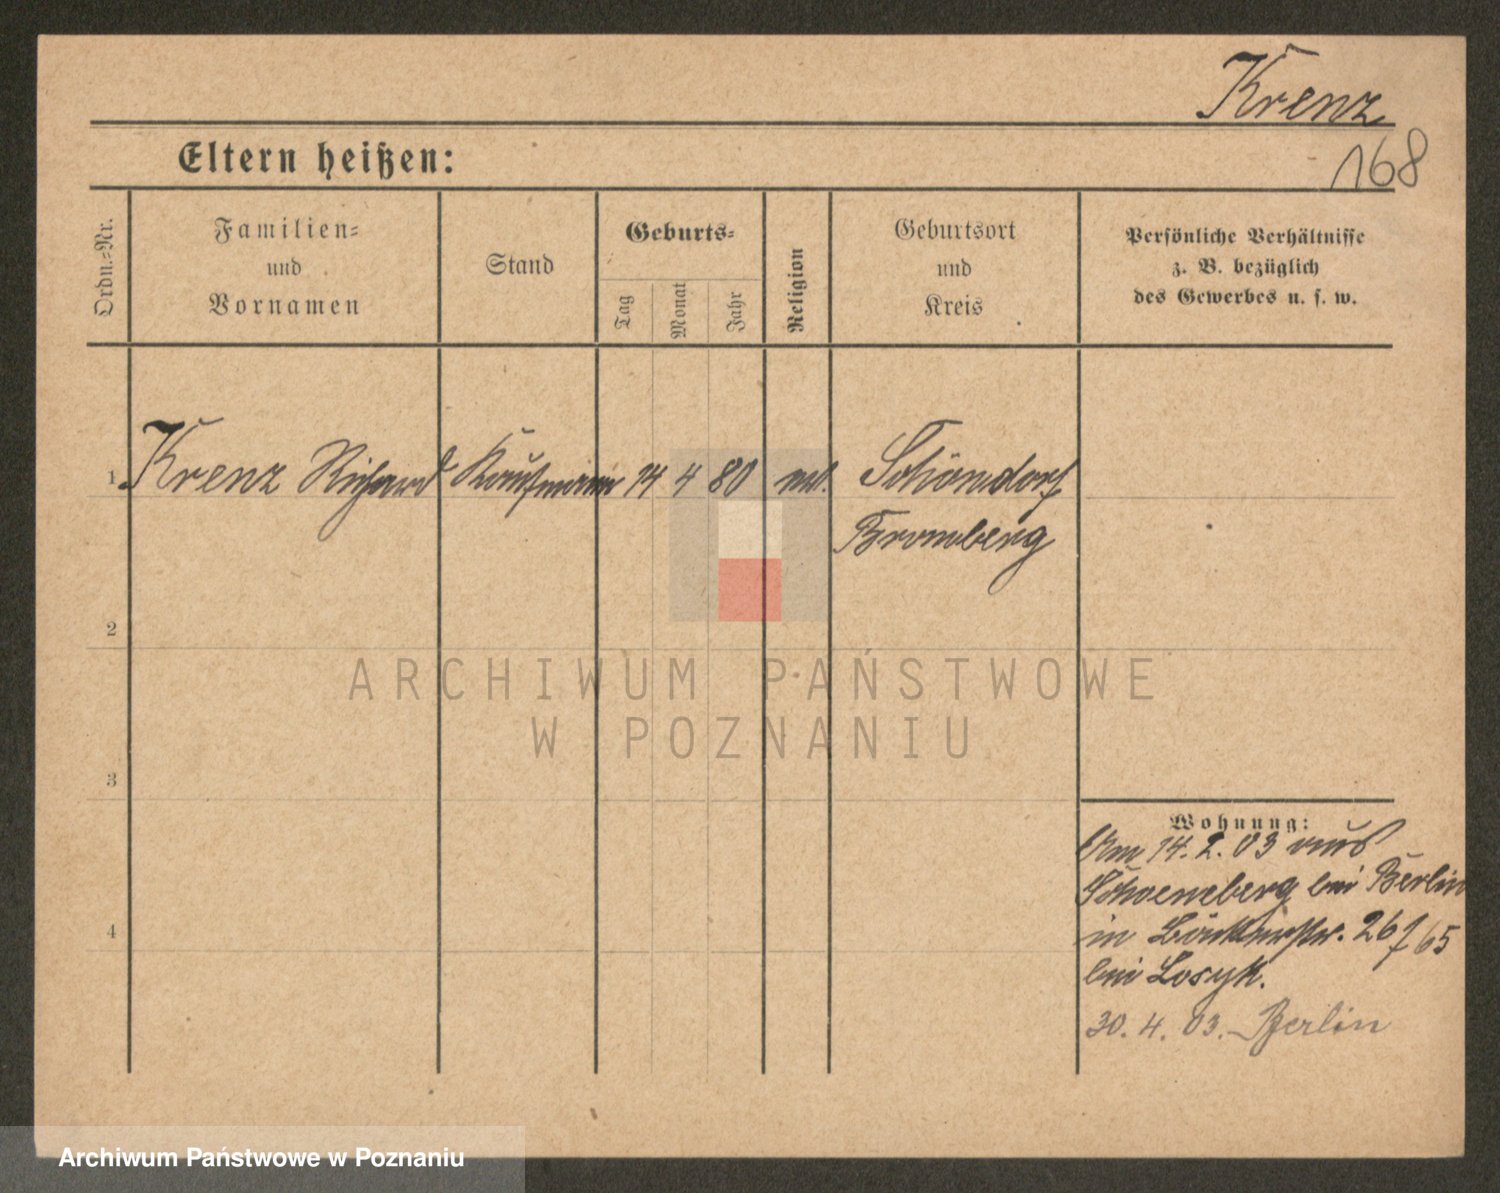 Krenz
168
Eltern heißen:
Ordn.-Nr.
Familien-
und
Vornamen
Stand
Geburts-
Tag
Monat
Jahr
Religion
Geburtsort
und
Kreis
Persönliche Verhältnisse
z. B. bezüglich
des Gewerbes u. s. w.
1 Krenz Richard Kaufmann 14 4 80 Schöndorf
Bromberg
2
ARCHIWUM PAŃSTWOWE
W POZNANIU
3
Wohnung:
Am 14.2.03 aus
Schoeneberg bei Berlin
in 26/65
bei Losyk.
4
30.4.03. Berlin
Archiwum Państwowe w Poznaniu